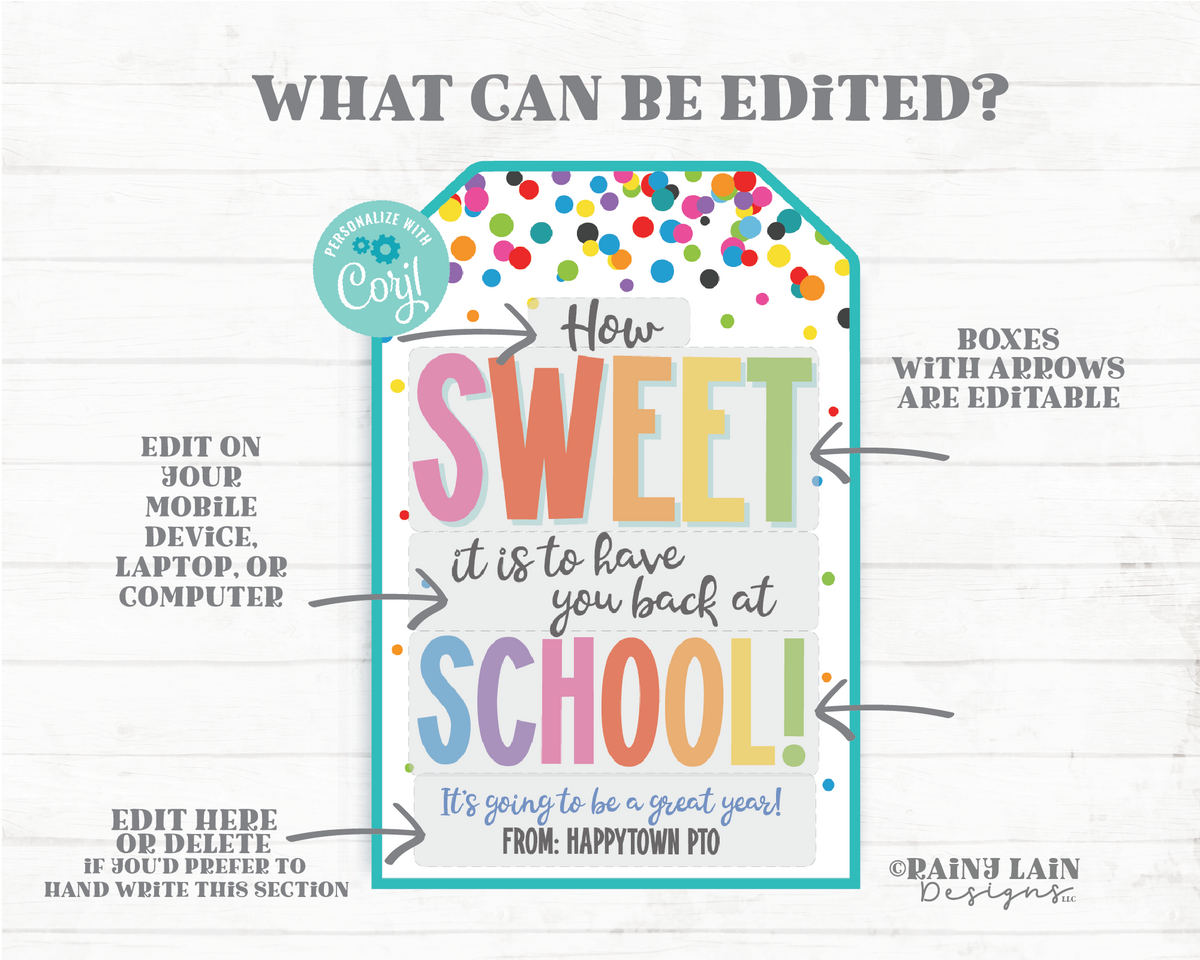 WHAT CAN BE EDiTED?
PERSONALIZE WITH
Corjl
How
SWEET
it is to have
you back at
SCHOOL!
It's going to be a great year!
FROM: HAPPYTOWN PTO
BOXES
WiTH ARROWS
ARE EDiTABLE
EDIT ON
YOUR
MOBiLE
DEViCE,
LAPTOP, OR
COMPUTER
EDIT HERE
OR DELETE
iF YOU'D PREFER TO
HAND WRiTE THiS SECTiON
©RAiNY LAiN
Designs LLC